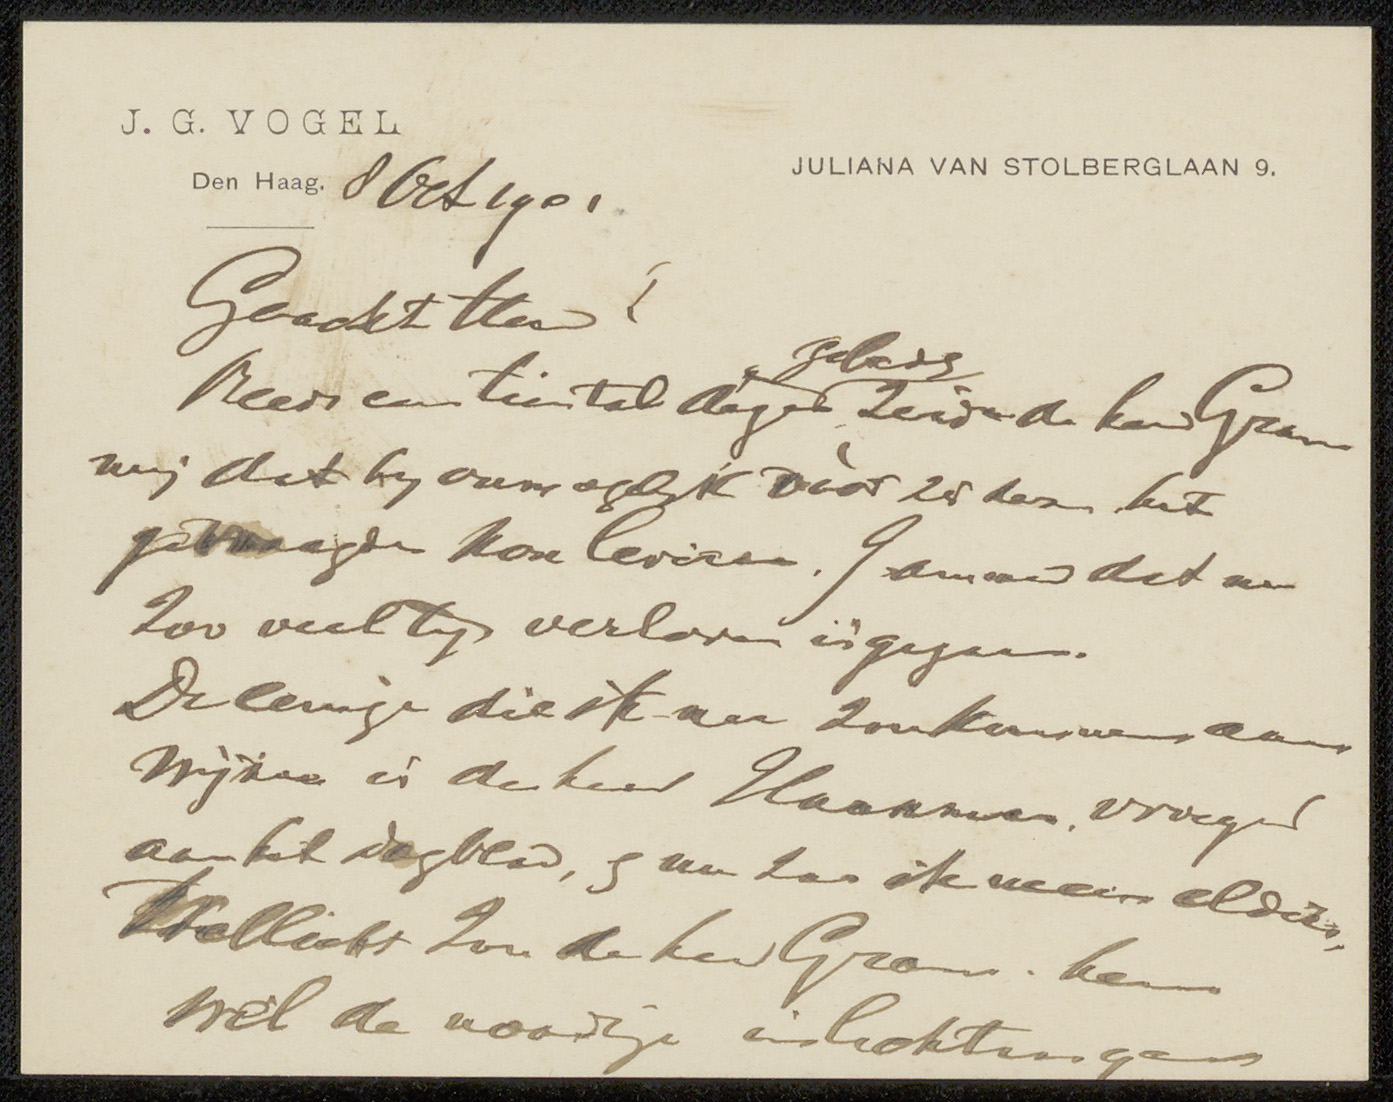 J. G. VOGEL
Den Haag. 8 Oct 1901
JULIANA VAN STOLBERGLAAN 9.
Geacht Heer!
geleden
Reeds een tiental dagen zeide de heer Gram
mij dat hy onmogelijk vóór het
gevraagde kon leveren. Jammer dat nu
zoo veel tijd verloren is gegaan.
De eenige die ik nu zou kunnen aan
wijzen is de heer Haakman, vroeger
aan het Dagblad, nu ik meen elders,
Wellicht zou de heer Gram hem
wèl de noodige inlichtingen